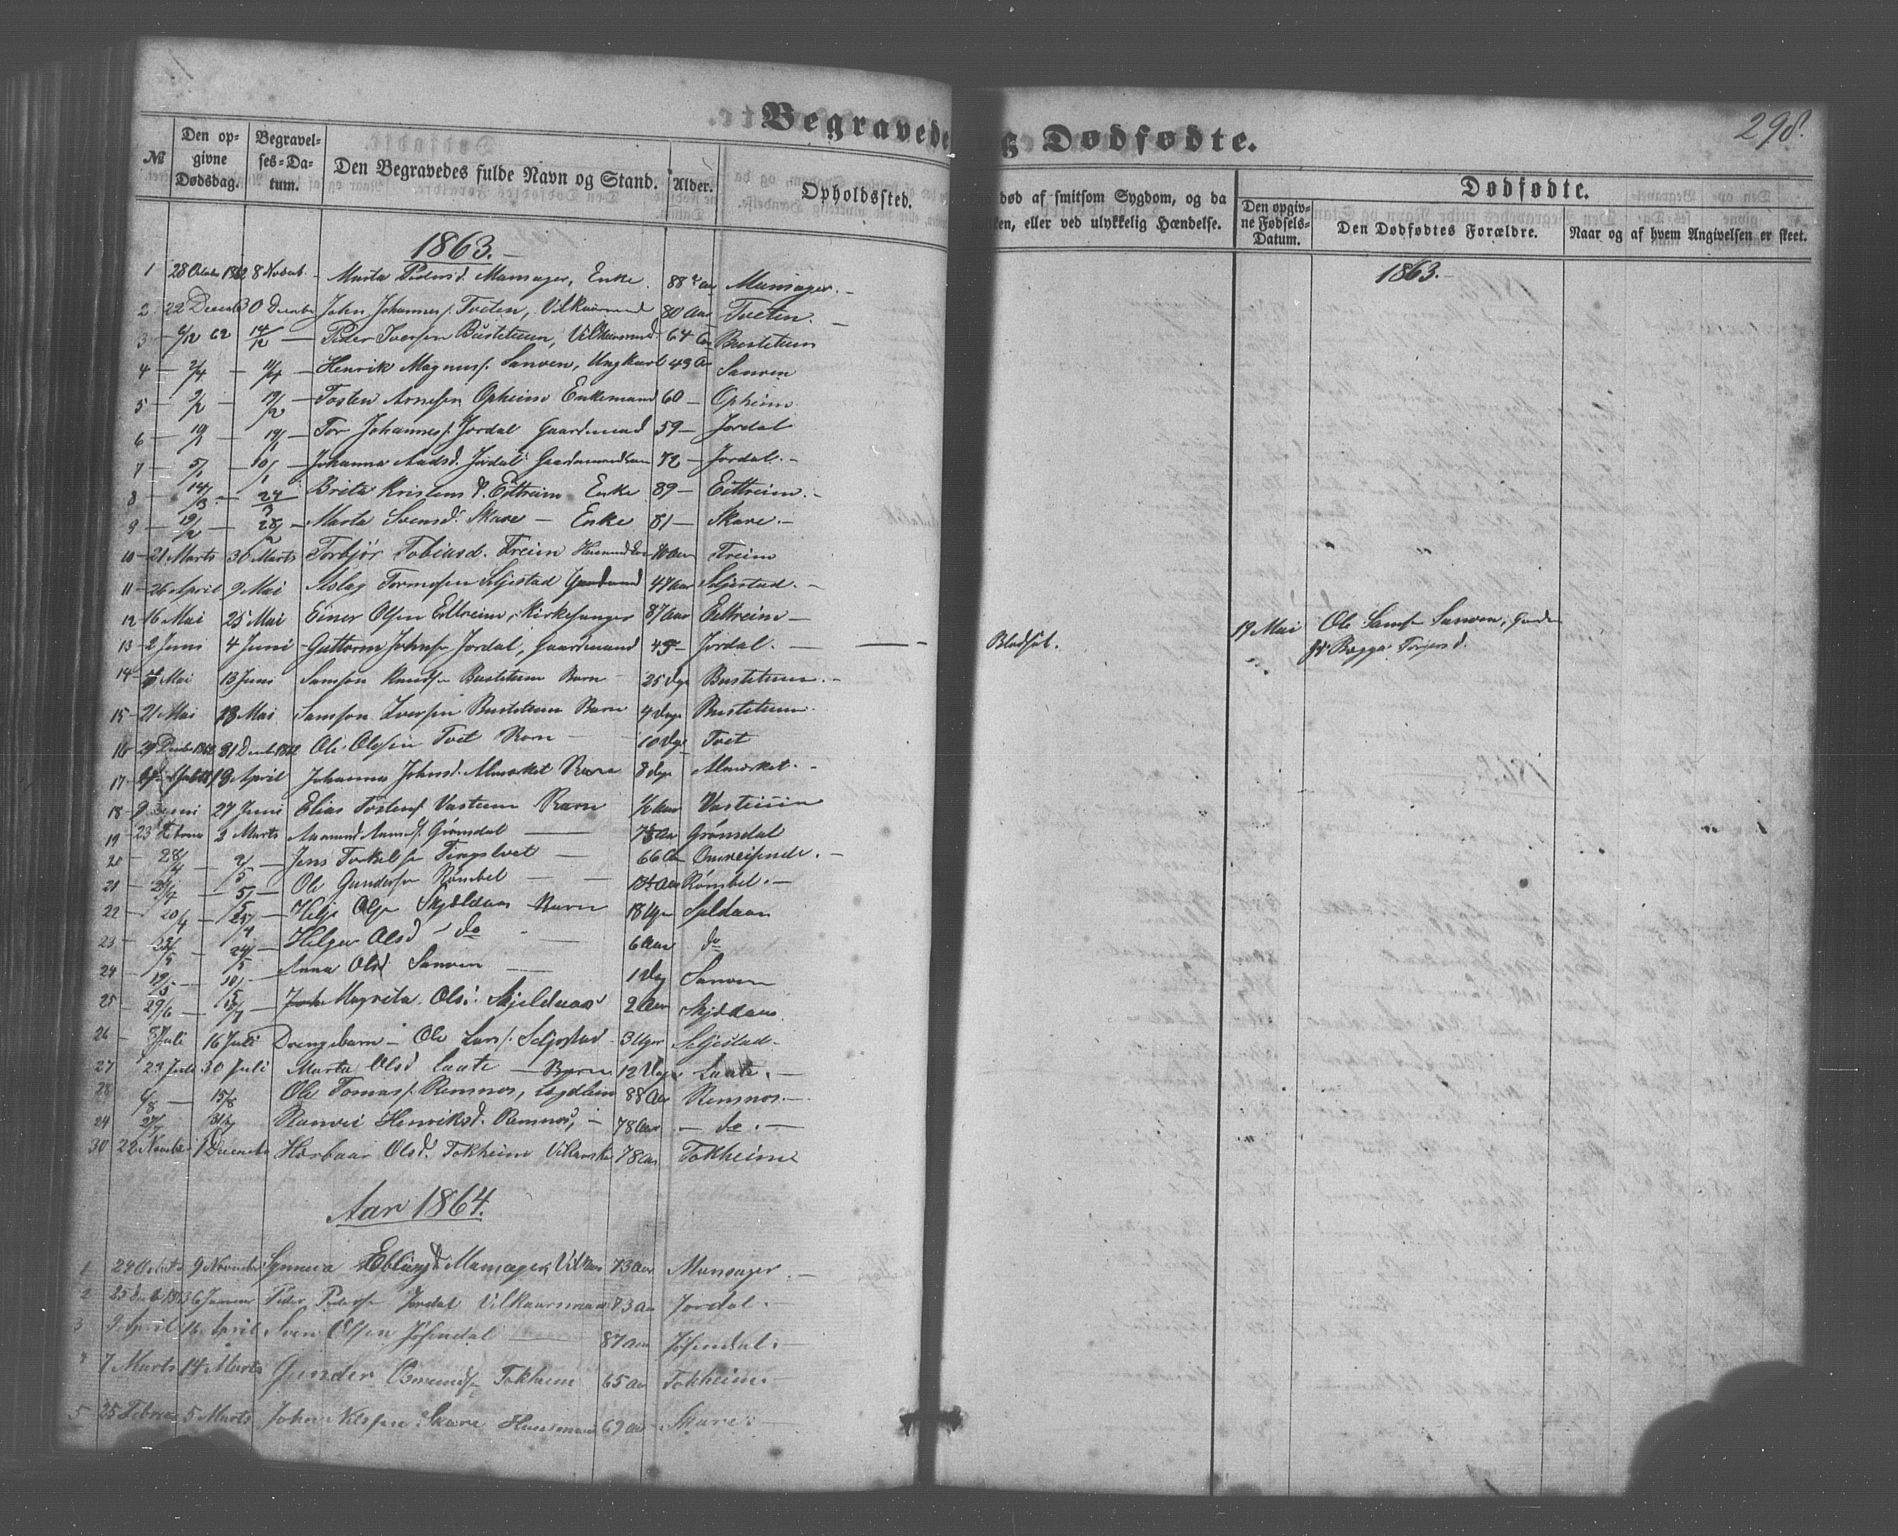 Begravede og Dødfødte.
298.
№
Den opgivne Dødsdag.
Begravelses-Datum.
Den Begravedes fulde Navn og Stand.
Alder.
Opholdssted.
død af smitsom Sygdom, og da
ken, eller ved ulykkelig Hændelse.
Dødfødte.
Den opgivne Fødsels-Datum.
Den Dødfødtes Forældre.
Naar og af hvem Angivelsen er skeet.
1863.
1863.
1 28 Octobr 1862 8 Novbr. Marta Pedersd. Mamager, Enke 88 Aar Mamager.
2 22 Decemb 30 Decembr John Johannes. Tveten, Vilkaarmand 80 Aar Tveten.
3 6/12 62 14/12 Peder Iversen Bustetuen, Vilkaarmand 64 Aar Bustetuen
4 2/4 11/4 Henrik Magnus. Sanven, Ungkarl 49 Aar Sanven
5 2/2 19/2 Tosten Arnesen Opheim Enkemand 60 Opheim
6 Tor Johannes. Jordal Gaardmand 59 Jordal
7 5/1 10/1 Johanna Aadsd. Jordal 72 Jordal.
8 14/3 24/3 Brita Kristensd. Eitreim Enke 89 Eitreim.
9 19/2 28/2 Marta Svensd. Skare Enke 81 Skare.
10 21 Marts 30 Marts Torbjør Tobiasd. Freim 70 Aar Freim
11 26 April 9 Mai Aslag Tormosen Seljestad Gardmand 47 Aar Seljestad.
12 16 Mai 25 Mai Einer Olsen Eitreim, Kirkesanger 87 Aar Eitreim
13 2 Juni 4 Juni Guttorm Johns. Jordal, Gaardmand 45 Jordal. Blodsot.
19 Mai Ole Sams. Sanven,
Bægga Torjersd.
14 Mai 13 Juni Samson Knuds. Bustetuen Barn 25 Dge Bustetuen.
15 21 Mai 28 Mai Samson Iversen Bustetuen Barn 4 Dage Bustetuen
16 29 Decbr 1862 31 Decbr 1862 Ole Olsen Tveit Barn 10 Dge Tveit
17 19 April Johannes Johnsd. Almerket Barn 8 dge Almerket.
18 9 Juni 27 Juni Elias Tostens. Vasteun Barn 1/2 Aar Vasteun
19 23 Februar 3 Marts Aamund Aamunds. Grønsdal Grønsdal
20 28/4 2/5 Jens Torkels. Tingstvet 66 Aar Omreisende.
21 5/5 Ole Gunders. Rømbel Rømbel.
22 20/4 Helje Ols. Skjældaas Barn 18 Uger Sjeldaas
23 24/5 Helger Olsd. do 6 Aar do
24 Anna Olsd. Sanven 1 Dag Sanven
25 29/6 Magrita Olsd. Skjeldaas 2 Aar Skjeldaas.
26 8 Juli 16 Juli Drengebarn - Ole Lars. Seljestad 3 Uger Seljestad
27 23 Juli 30 Juli Marta Olsd. Laate Barn 12 Dage Laate.
28 6/8 15/8 Ole Tomas. Remnos, Lægdlem 88 Aar Remnos.
24 Ranvei Henriksd. Remnos, 78 Aar do.
30 22 Novembr 1 Decembr Herbaar Olsd. Tokheim 78 Aar Tokheim
Aar 1864.
1 29 Octobr 9 November Synneva Mamager, Vilkaar 73 Aar Mamager
2 25 Decbr 1863 6 Januar Peder Peders. Jordal Vilkaarsmand 83 Aar Jordal.
3 9 April 16 April Sven Olsen Jøsendal 87 Aar Jøsendal.
4 7 Marts 14 Marts Gunder Omunds. Tokheim 65 Aar Tokheim.
5 25 Februar 5 Marts John Nilssen Skare Husmand 69 Aar Skare.